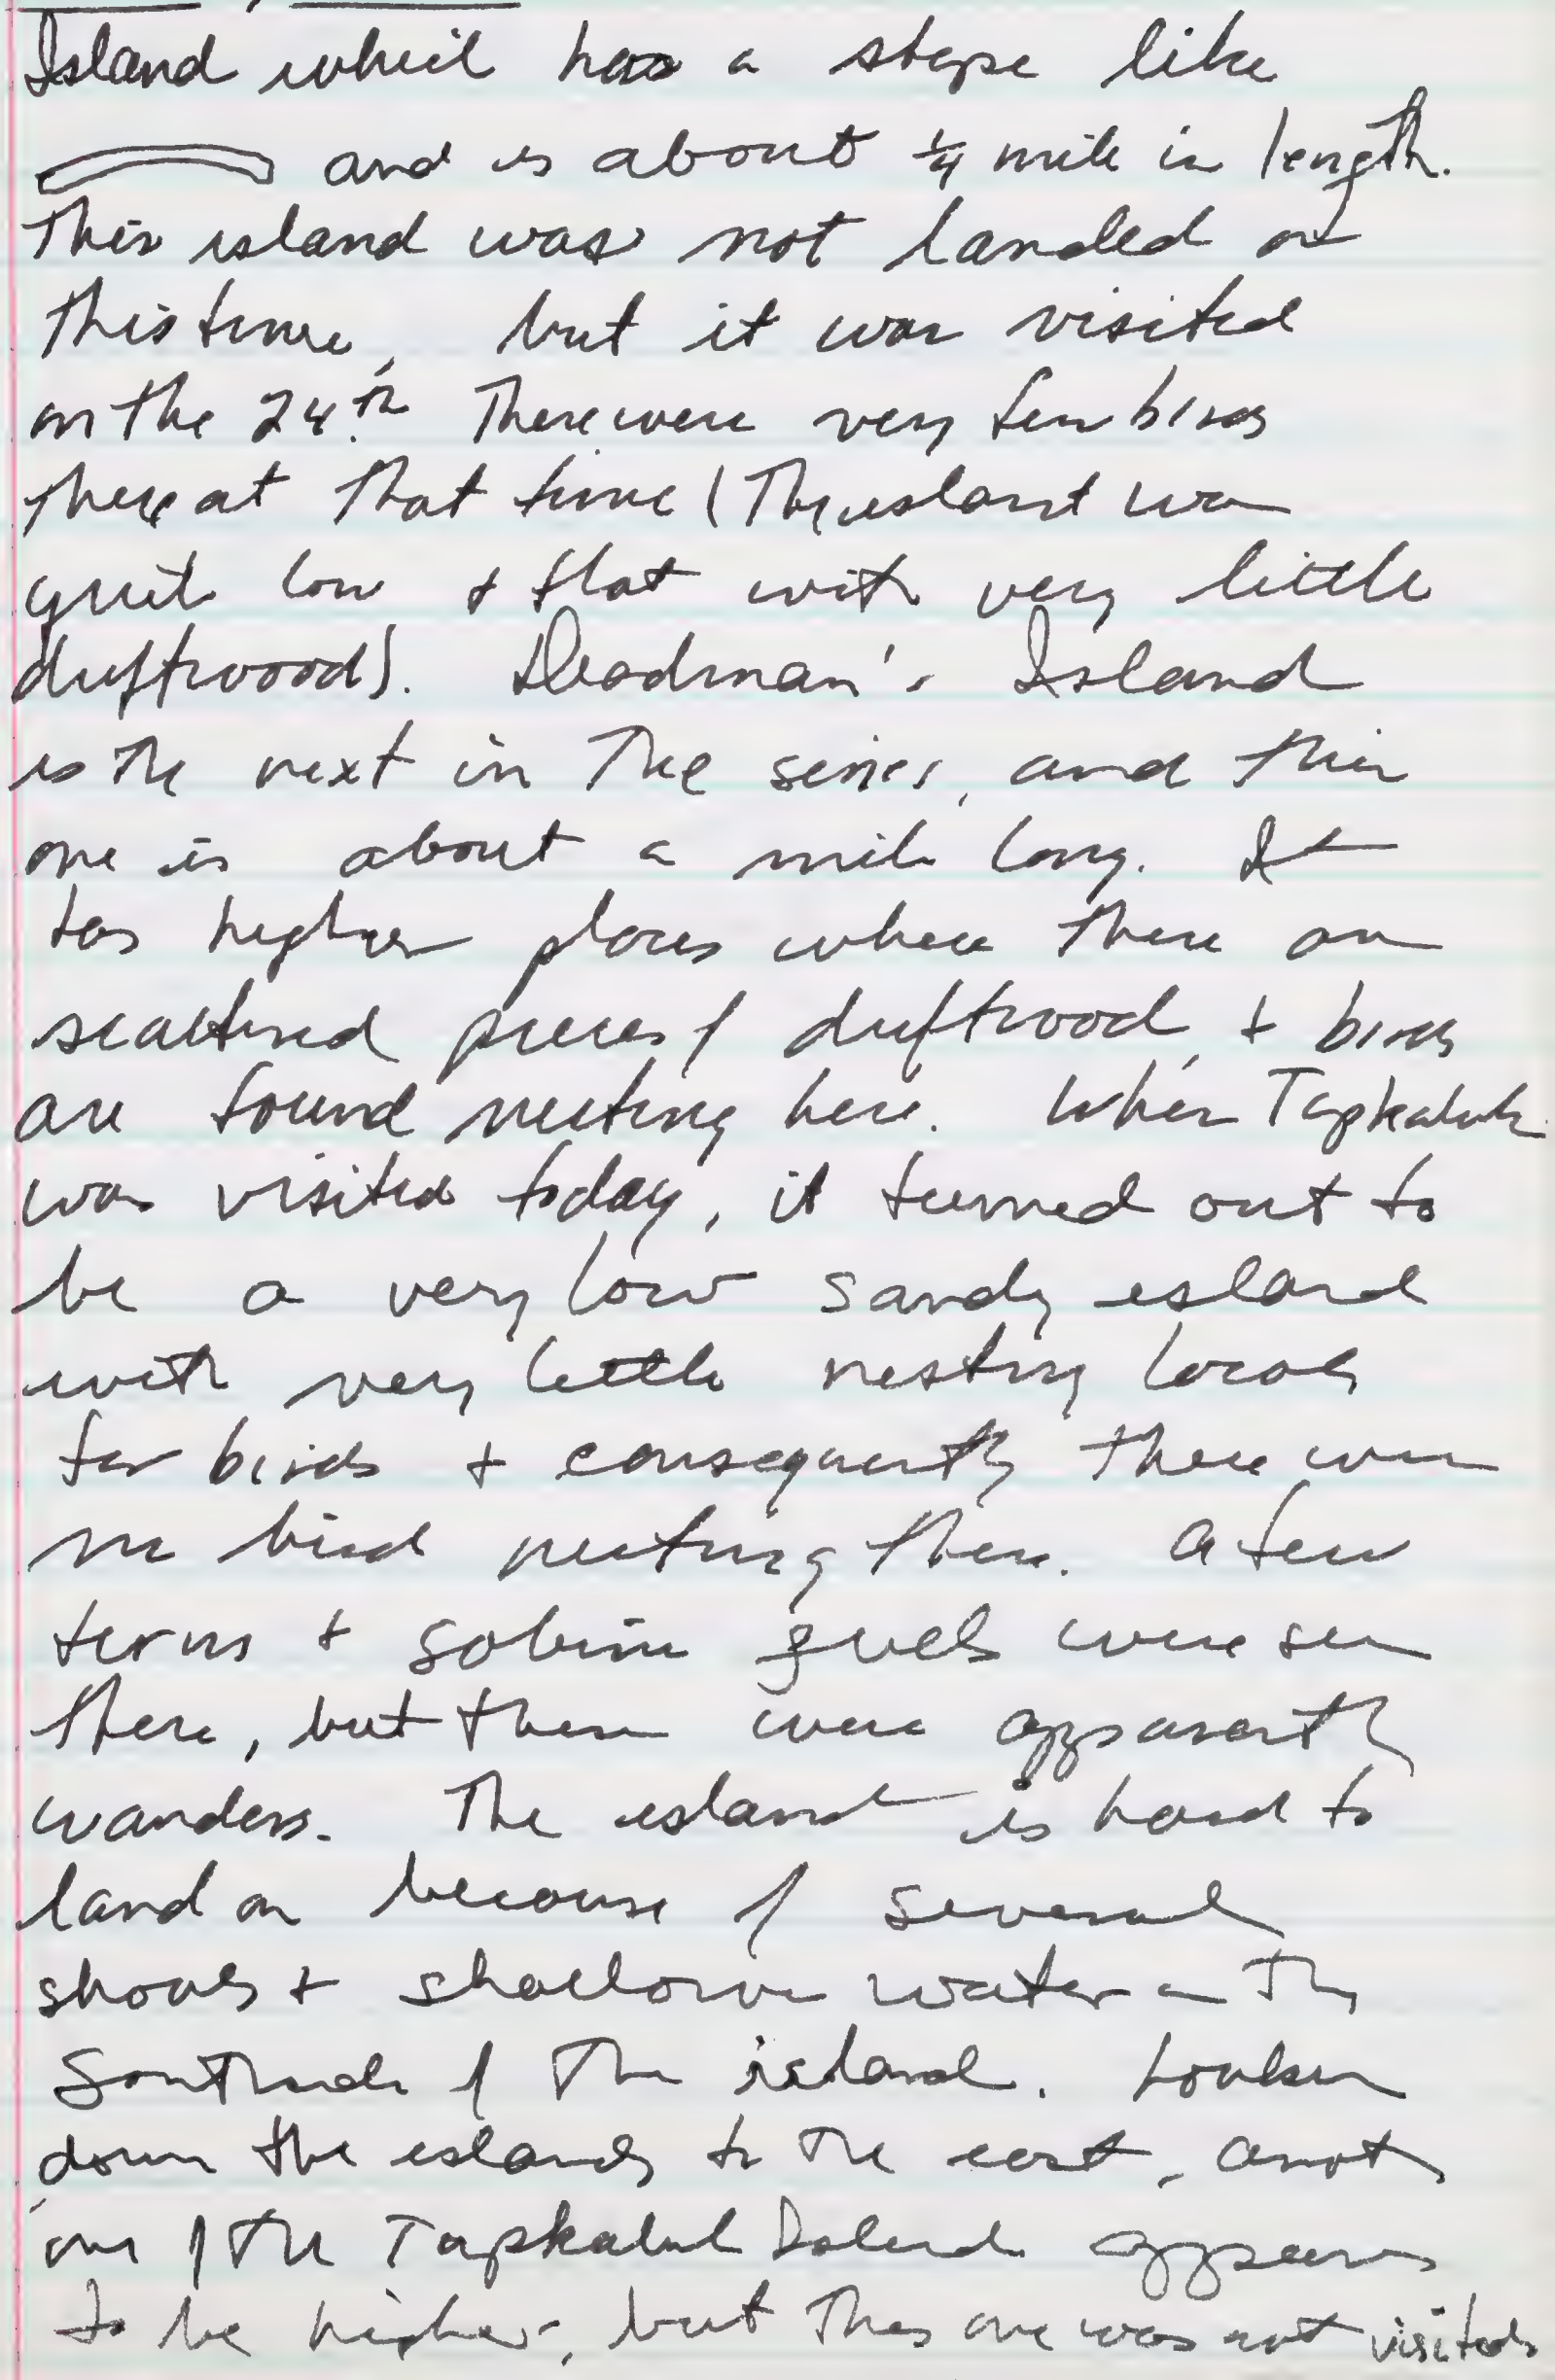 Island which has a shape like
and is about 1/4 mile in length.
This island was not landed on
this time, but it was visited
on the 24th. There were very few birds
there at that time (The island was
quite low & flat with very little
driftwood). Deadman's Island
is the next in the series, and this
one is about a mile long. It
has higher places where there are
scattered pieces of driftwood, & birds
are found nesting here. When Tapkaluk
was visited today, it turned out to
be a very low sandy island
with very little nesting locals
for birds & consequently there were
no bird nesting there. A few
terns & sabine gulls were seen
there, but these were apparently
wanders. The island is hard to
land on because of several
shoals & shallow water on the
Southside of the island. Looking
down the islands to the east, another
one of the Tapkaluk Islands appears
to be higher, but this one was not visited